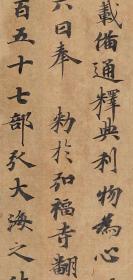 載備通釋典利物為心
六日奉 勑於弘福寺翻
百五十七部引大海之法